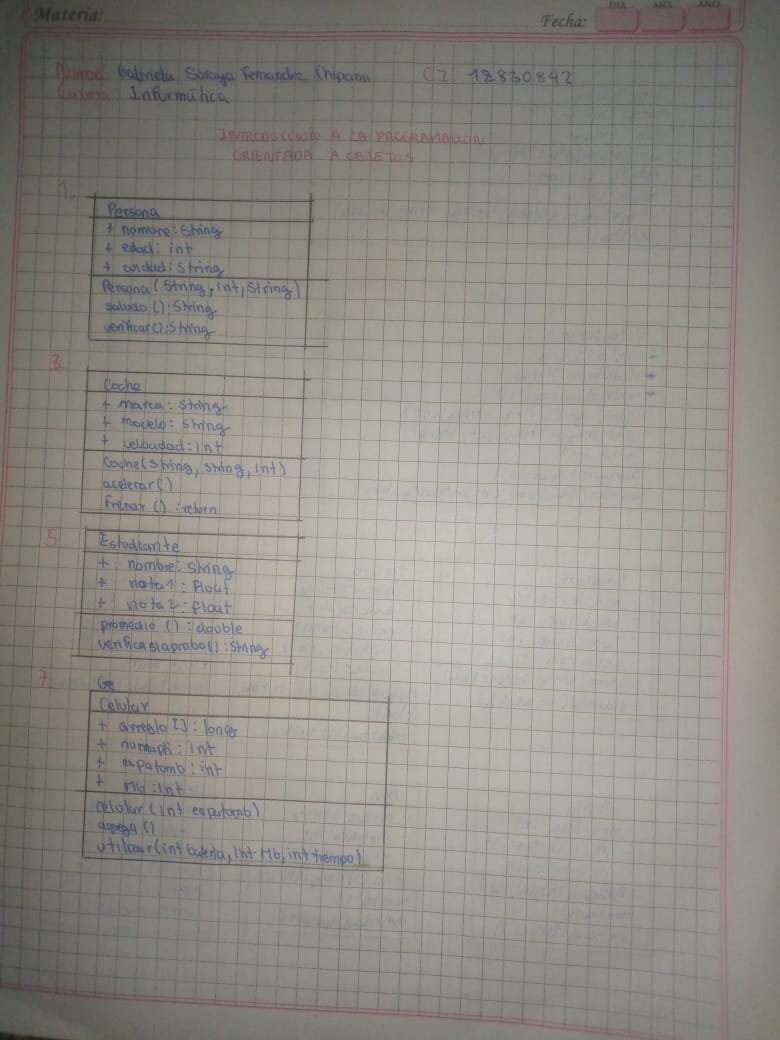 Materia:
Fecha:
DIA MES AÑO
Nombre Gabriela Soraya Fernandez Chipana C I 12830842
Carrera Informática
INTRODUCCION A LA PROGRAMACION
ORIENTADA A OBJETOS
1.
Persona
+ nombre: String
+ edad: int
+ ciudad: String
Persona (String, int, String)
saludo (): String
verificar(): String
3.
Coche
+ marca: String
+ modelo: String
+ velocidad: int
Coche(String, String, int)
acelerar()
frenar () : return
5.
Estudiante
+ nombre: String
+ nota1: float
+ nota2: float
promedio (): double
verificasiaprobo(): String
7.
Celular
+ arreglo []: long
+ numapli: int
+ espatomb: int
+ Mb: int
celular (int espatomb)
agrega ()
utilizar (int bateria, int Mb, int tiempo)